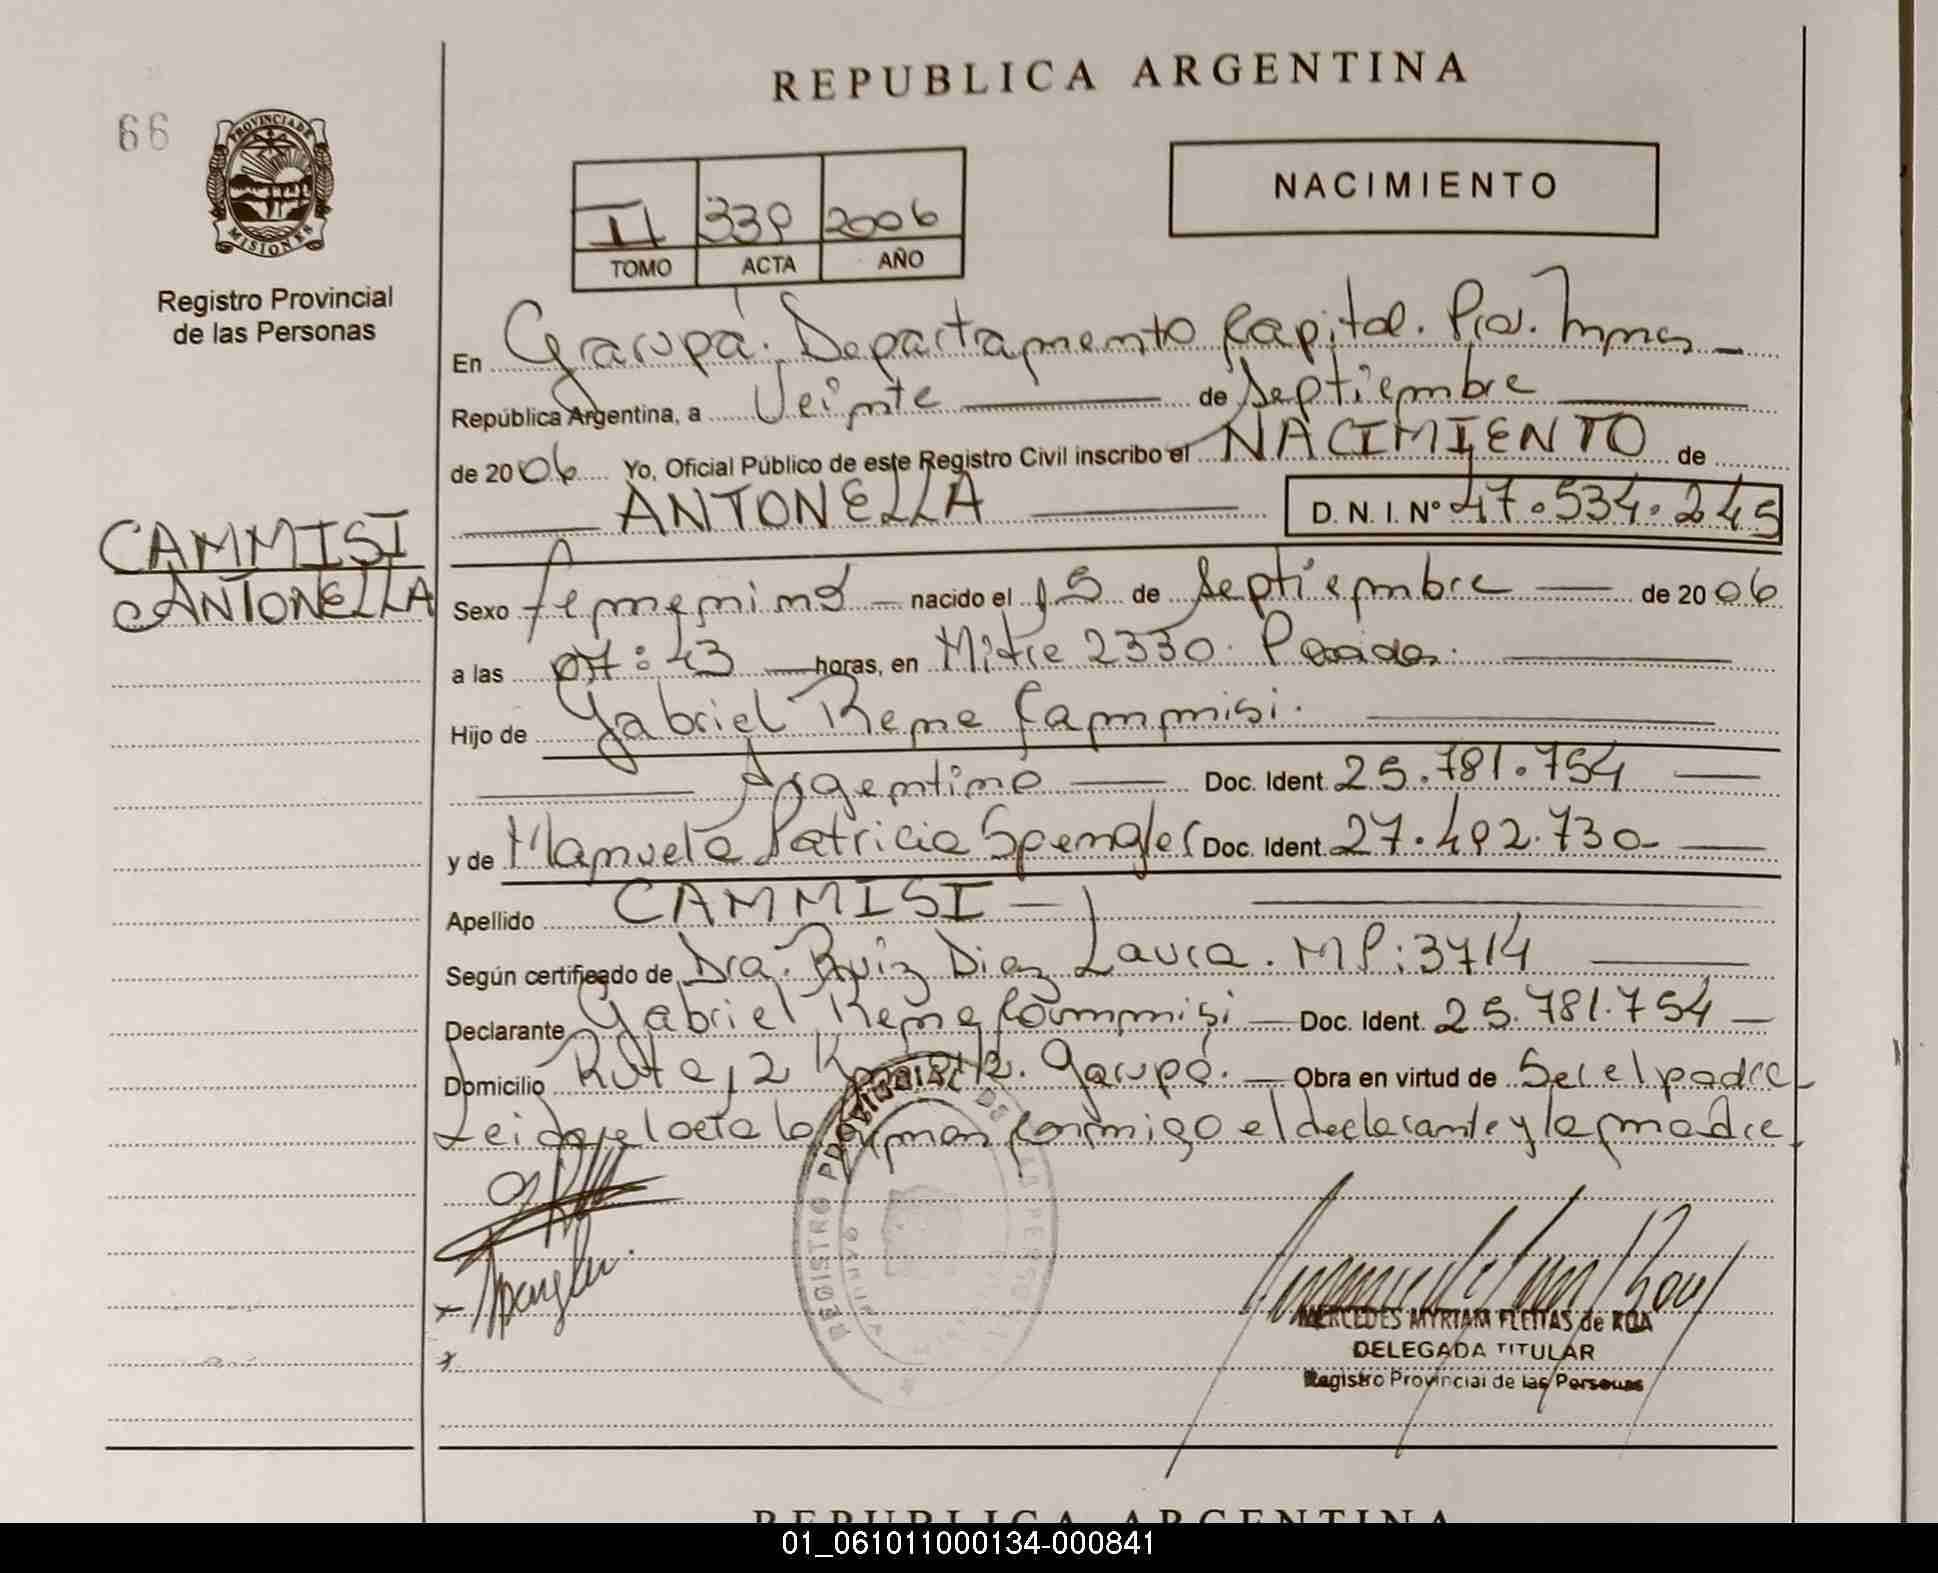 REPUBLICA ARGENTINA
66
PROVINCIA DE MISIONES
Registro Provincial
de las Personas
II 339 2006
TOMO ACTA AÑO
NACIMIENTO
En Garupá. Departamento Capital. Pcia. Mnes
República Argentina, a Veinte de Septiembre
de 2006 Yo, Oficial Público de este Registro Civil inscribo el NACIMIENTO de
ANTONELLA D.N.I. Nº 47.534.245
CAMMISI
ANTONELLA
Sexo femenino nacido el 15 de Septiembre de 2006
a las 07:43 horas, en Mitre 2330. Posadas.
Hijo de Gabriel Rene Cammisi.
Argentino Doc. Ident. 25.781.754
y de Manuela Patricia Spengler Doc. Ident. 27.492.730
Apellido CAMMISI
Según certificado de Dra. Ruiz Diaz Laura. MP: 3714
Declarante Gabriel Rene Cammisi Doc. Ident. 25.781.754
Domicilio Ruta 12 Km Garupá. Obra en virtud de Ser el padre
Leida el acta la firman conmigo el declarante y la madre
Spengler
REGISTRO PROVINCIAL DE LAS PERSONAS
GARUPA
MERCEDES MYRIAM FLEITAS de ROA
DELEGADA TITULAR
Registro Provincial de las Personas
REPUBLICA ARGENTINA
01_061011000134-000841